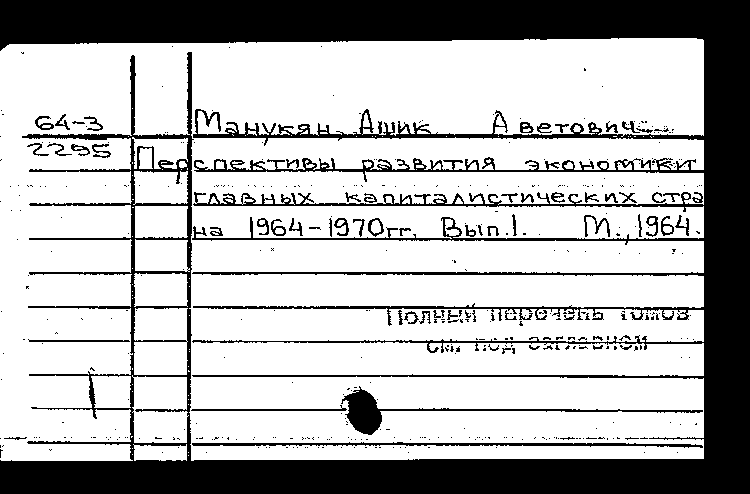 64-3 Манукян, Ашик Аветович
2295 Перспективы развития экономики
главных капиталистических стра
на 1964-1970гг. Вып.1. М.,1964.
Полный перечень томов
см. под заглавием